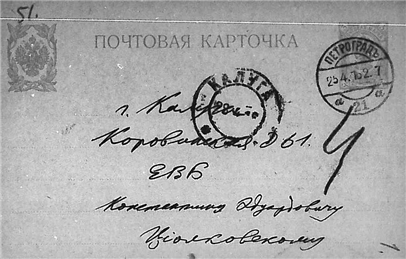 51.
ПОЧТОВАЯ КАРТОЧКА
ПЕТРОГРАДЪ
25.4.16.2-7
а 21 а
КАЛУГА
г. Калуга
Коровинская д 61.
ЕВБ
Константину Эдуардовичу
Циолковскому
1.